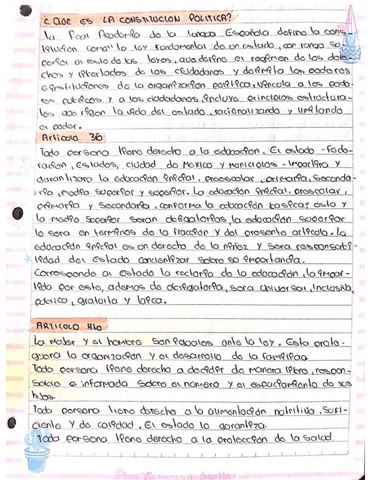 ¿QUE ES LA CONSTITUCION POLITICA?
La Real Academia de la Lengua Española define la cons-
titucion como la ley fundamental de un estado, con rango su-
perior al resto de las leyes, que define el regimen de los dere-
chos y libertades de los ciudadanos y delimita los poderes
e instituciones de la organización política, vincula a los pode-
res publicos y a los ciudadanos, incluye principios estructura-
les que rigen la vida del estado, racionalizando y limitando
el poder.
Articulo 3o
Toda persona tiene derecho a la educacion. El estado -Fede-
racion, Estados, ciudad de Mexico y municipios- impartira y
garantizara la educacion inicial, preescolar, primaria, Secunda-
ria, media superior y superior. La educacion inicial, preescolar,
primaria y Secundaria, conforma la educacion basica; esta y
la media superior seran obligatorias, la educacion superior
lo sera en terminos de la fraccion y del presente articulo. La
educacion inicial es un derecho de la niñez y sera responsabi-
lidad del Estado concientizar sobre su importancia.
Corresponde al estado la rectoria de la educacion, la impar-
tida por este, ademas de obligatoria, sera universal, inclusiva,
publica, gratuita y laica.
ARTICULO 4to
La mujer y el hombre son iguales ante la ley. Esta prote-
gera la organizacion y el desarrollo de la familia.
Toda persona tiene derecho a decidir de manera libre, respon-
sable e informada sobre el numero y el espaciamiento de sus
hijos.
Toda persona tiene derecho a la alimentación nutritiva, sufi-
ciente y de calidad. El estado lo garantiza.
Toda persona tiene derecho a la proteccion de la salud.